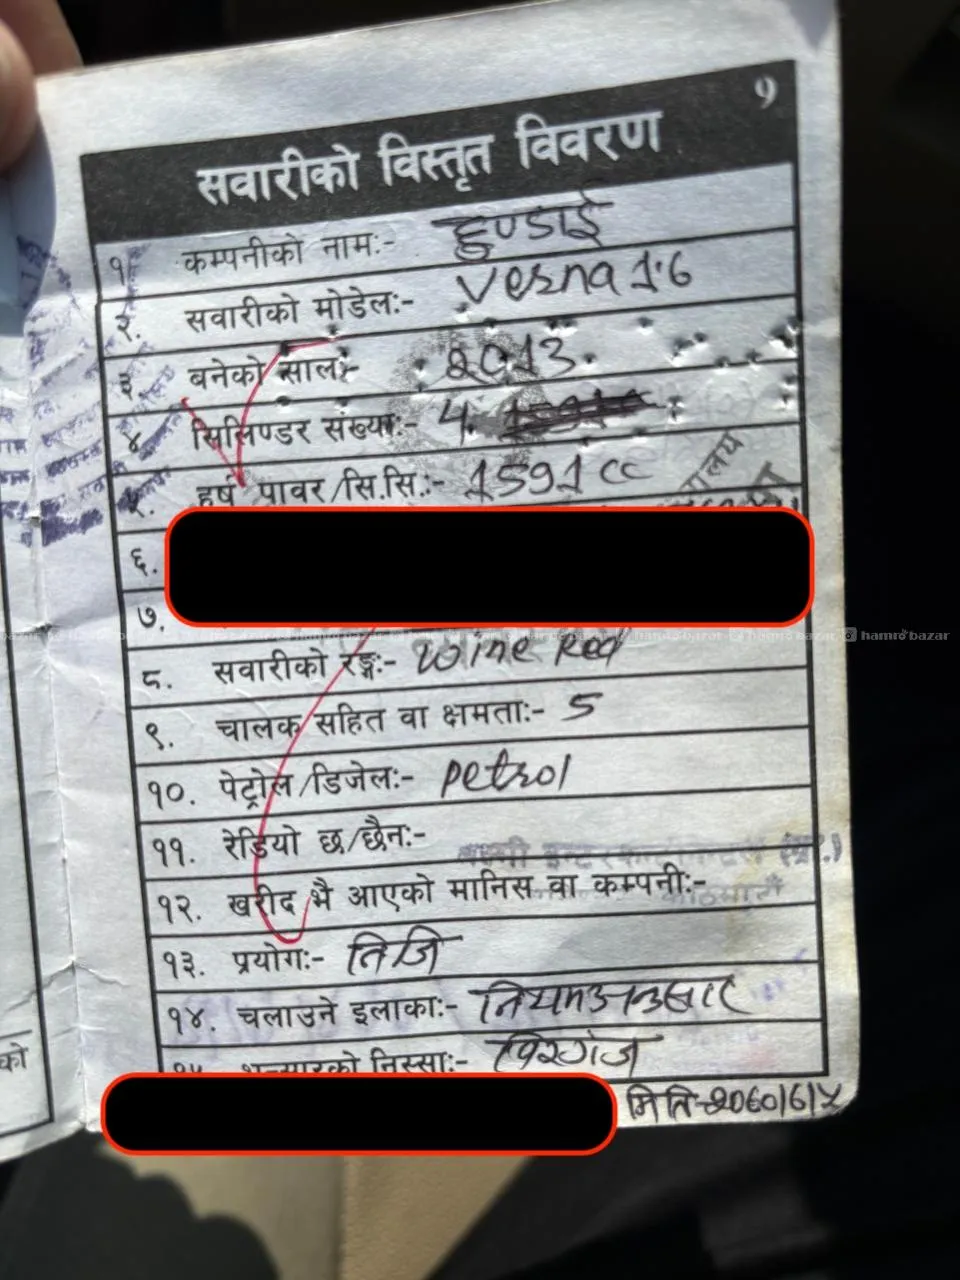 ९
सवारीको विस्तृत विवरण
१. कम्पनीको नाम:- हुण्डाई
२. सवारीको मोडेल:- Verna 1.6
३. बनेको साल:- 2013
४. सिलिण्डर संख्या:- 4
५. हर्ष पावर/सि.सि.:- 1591 cc
६.
७.
hamrobazar hamrobazar hamrobazar
८. सवारीको रङ्ग:- Wine Red
९. चालक सहित वा क्षमता:- 5
१०. पेट्रोल/डिजेल:- petrol
११. रेडियो छ/छैन:-
१२. खरीद भै आएको मानिस वा कम्पनी:-
१३. प्रयोग:- निजि
१४. चलाउने इलाका:- नियमानुसार
१५. भन्सारको निस्सा:- विरगंज
मिति
को